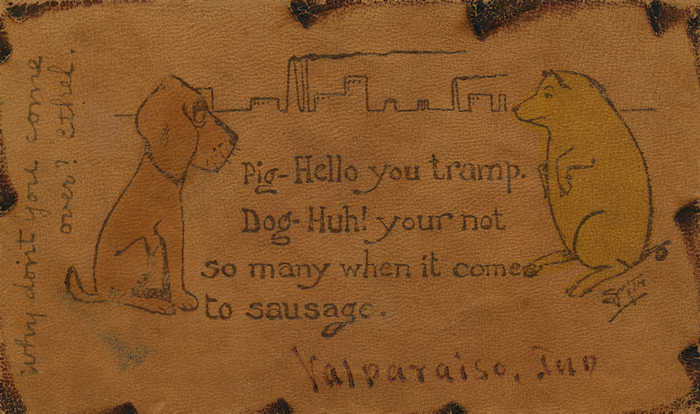 why don't you come
over? Ethel.
Pig- Hello you tramp.
Dog- Huh! your not
so many when it comes
to sausage.
Valparaiso, Ind